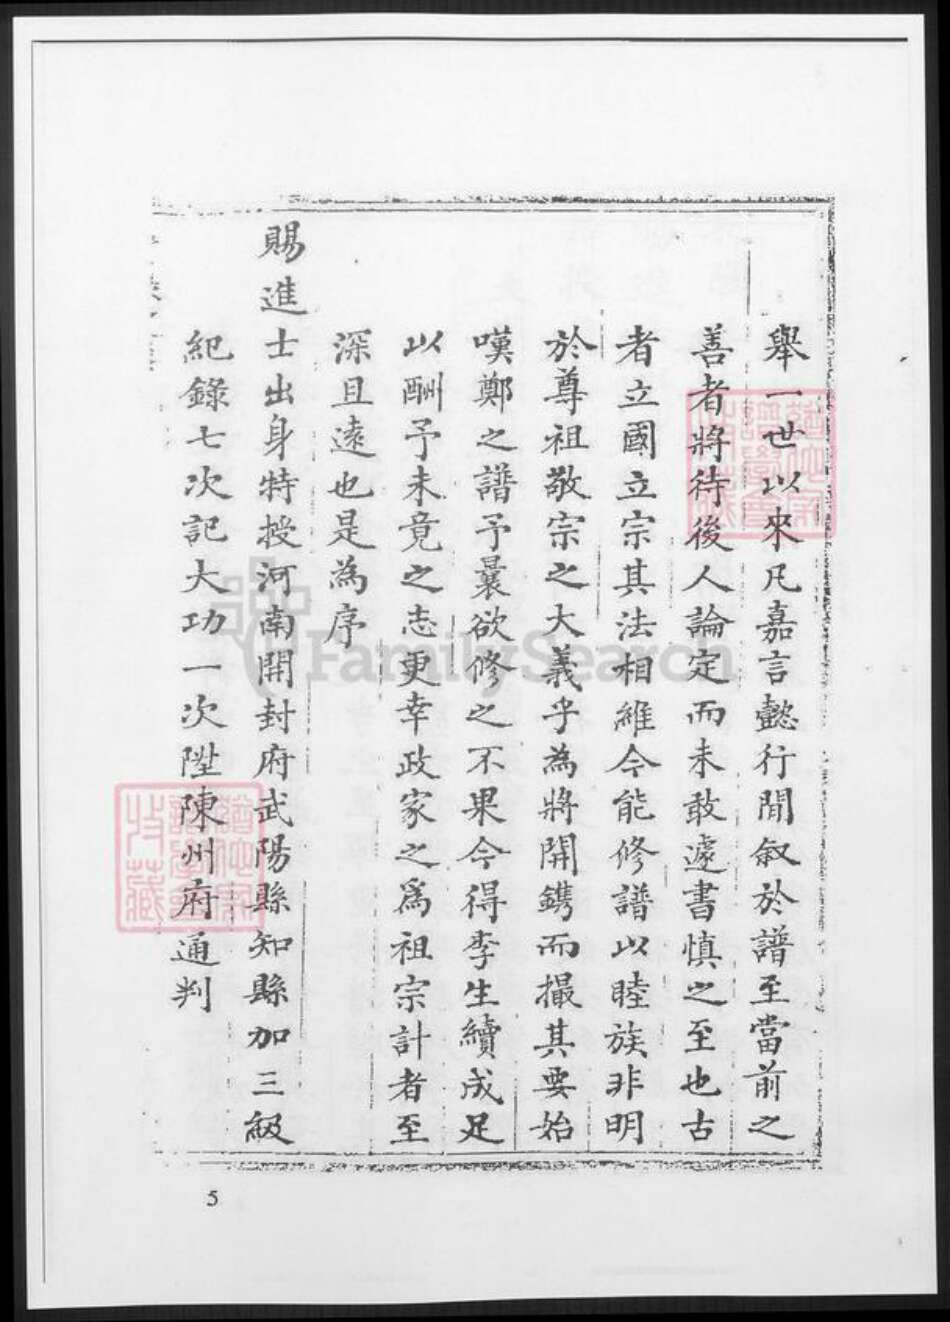 舉一世以來凡嘉言懿行聞叙於譜至當前之
善者將待後人論定而未敢遽書慎之至也古
者立國立宗其法相維今能修譜以睦族非明
於尊祖敬宗之大義乎為將開鐫而撮其要始
嘆鄭之譜予曩欲修之不果今得李生續成足
以酬予未竟之志更幸政家之爲祖宗計者至
深且遠也是為序
賜進士出身特授河南開封府武陽縣知縣加三級
紀錄七次記大功一次陞陳州府通判
5
FamilySearch